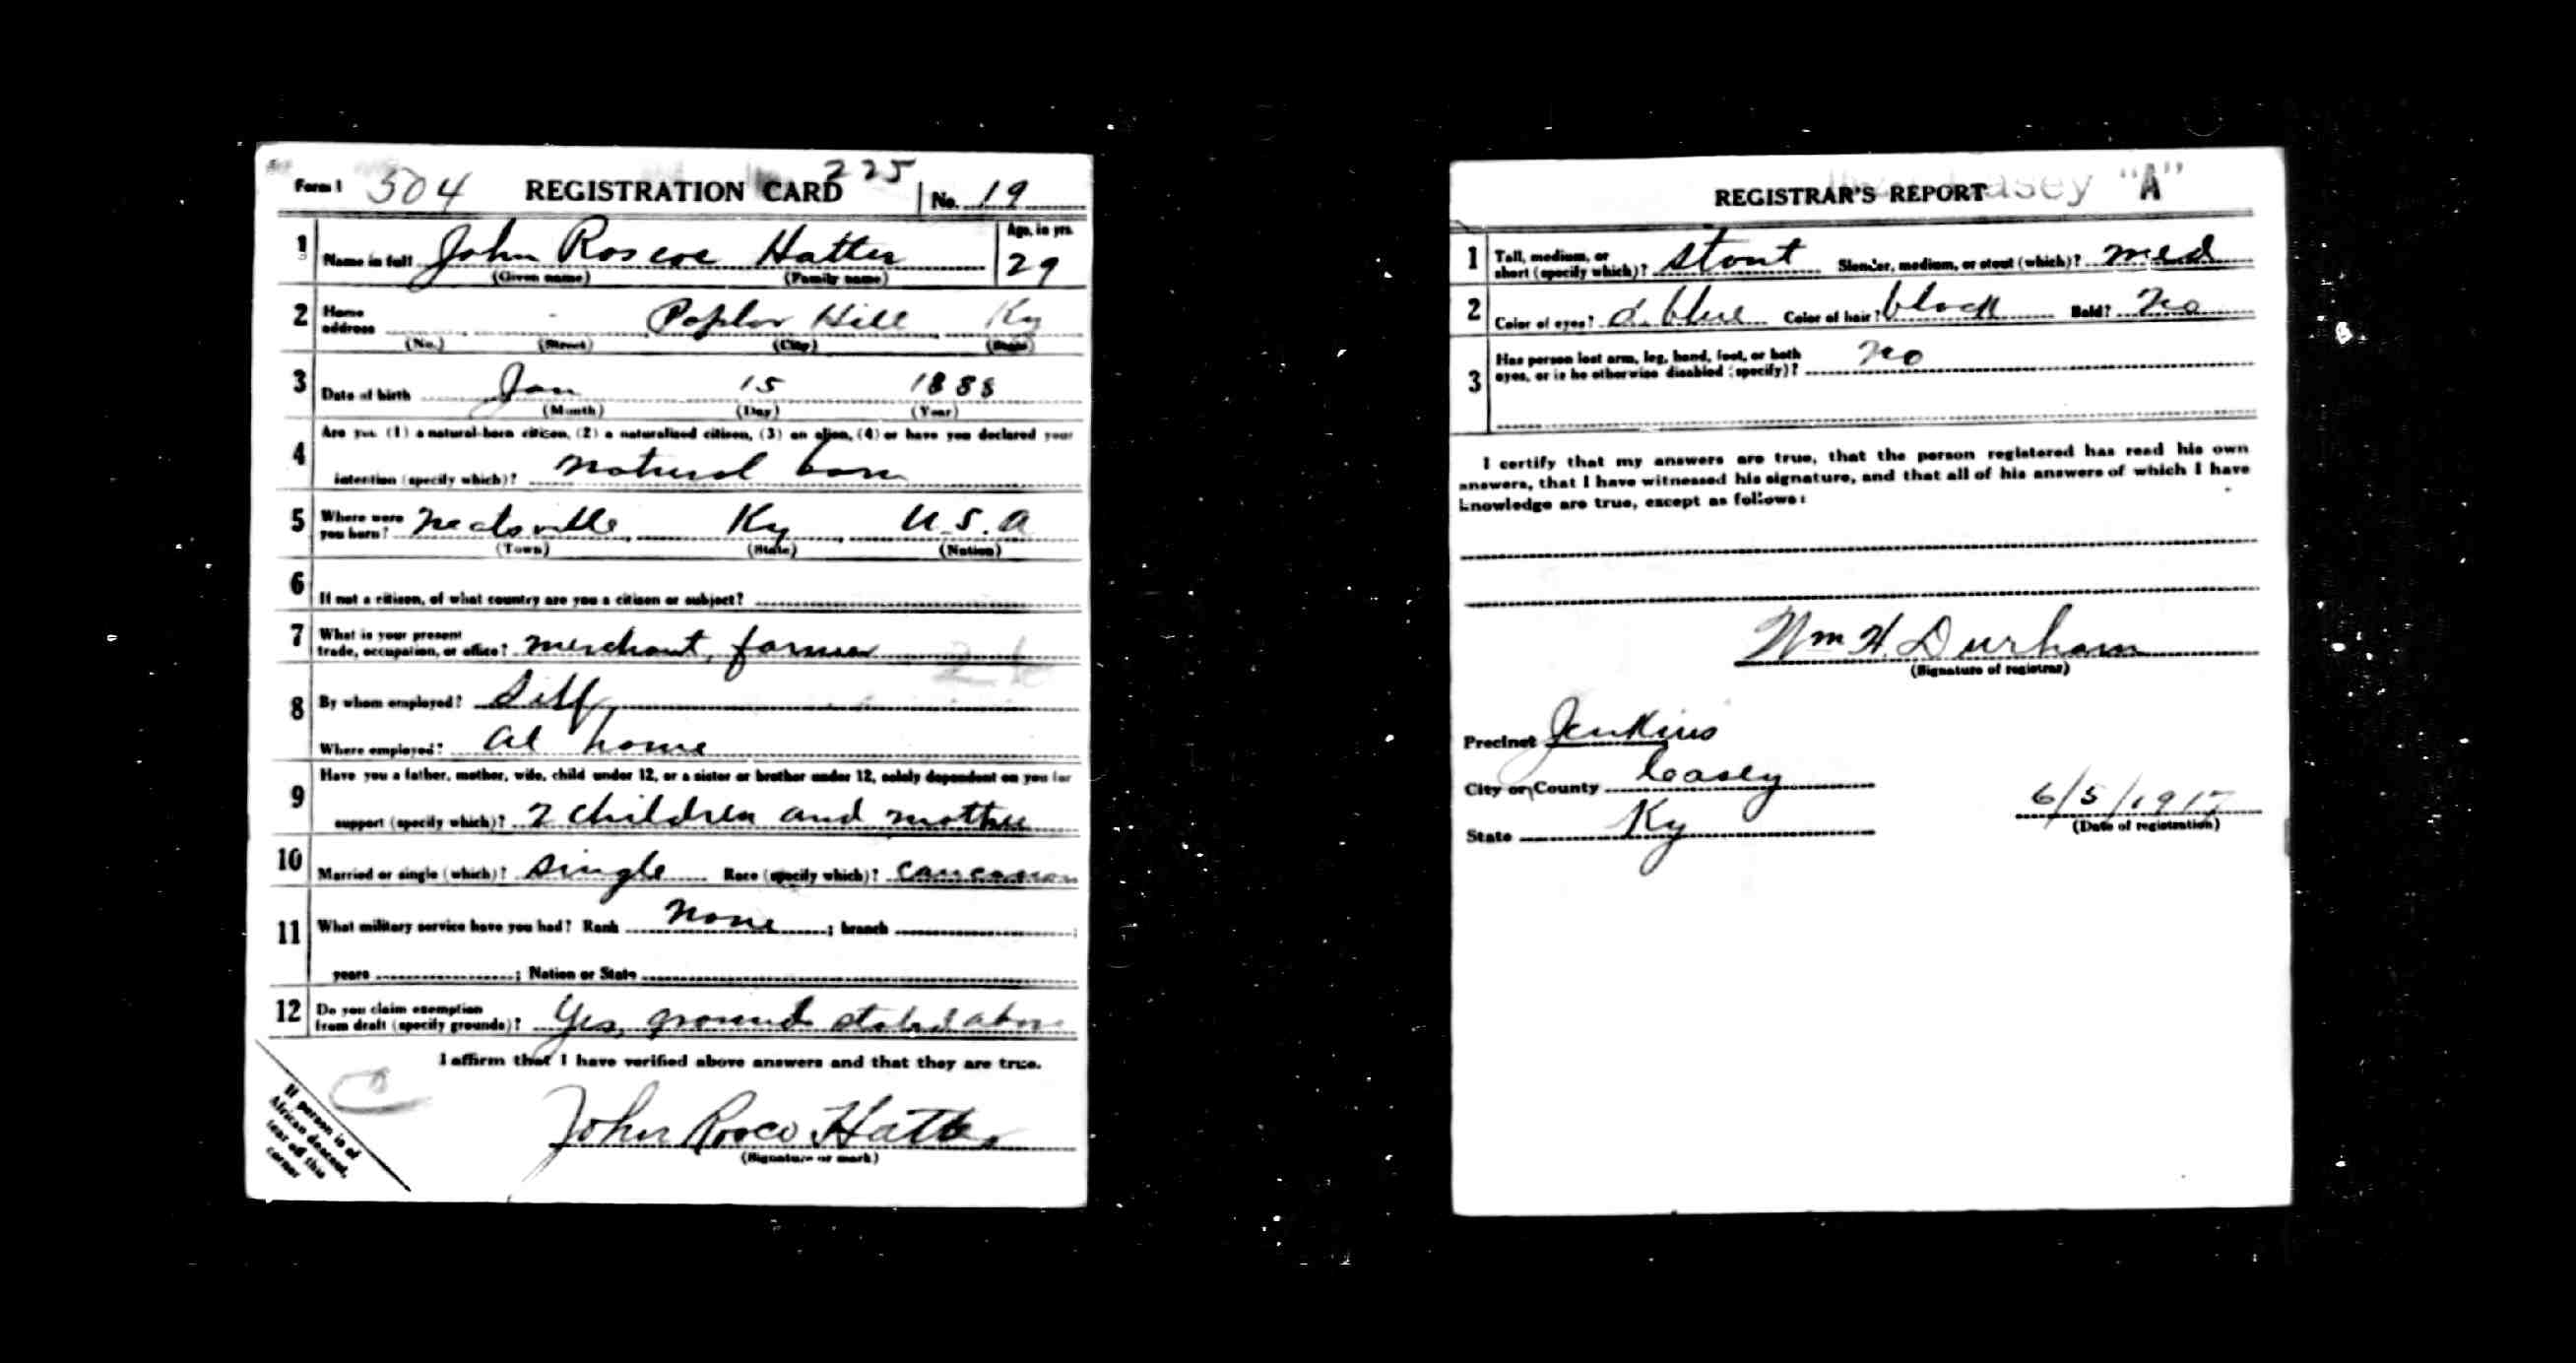 Form 1 504 REGISTRATION CARD 225 No. 19
1 Name in full John Roscoe Hatter Age, in yrs. 29
(Given name) (Family name)
2 Home address Poplar Hill Ky
(No.) (Street) (City) (State)
3 Date of birth Jan 15 1888
(Month) (Day) (Year)
4 Are you (1) a natural-born citizen, (2) a naturalized citizen, (3) an alien, (4) or have you declared your
intention (specify which)? natural born
5 Where were you born? Ky U.S.A
(Town) (State) (Nation)
6 If not a citizen, of what country are you a citizen or subject?
7 What is your present
trade, occupation, or office? merchant, farmer
8 By whom employed? Self
Where employed? at home
9 Have you a father, mother, wife, child under 12, or a sister or brother under 12, solely dependent on you for
support (specify which)? 2 children and mother
10 Married or single (which)? single Race (specify which)? caucasian
11 What military service have you had? Rank none ; branch ;
years ; Nation or State
12 Do you claim exemption
from draft (specify grounds)? Yes, ground stated above
I affirm that I have verified above answers and that they are true.
John Rosco Hatter
(Signature or mark)
If person is of
African descent,
tear off this
corner
REGISTRAR'S REPORT Casey "A"
1 Tall, medium, or
short (specify which)? stout Slender, medium, or stout (which)? med
2 Color of eyes? d. blue Color of hair? black Bald? No
3 Has person lost arm, leg, hand, foot, or both
eyes, or is he otherwise disabled (specify)? no
I certify that my answers are true, that the person registered has read his own
answers, that I have witnessed his signature, and that all of his answers of which I have
knowledge are true, except as follows:
Wm H. Durham
(Signature of registrar)
Precinct Jenkins
City or County Casey
State Ky
6/5/1917
(Date of registration)